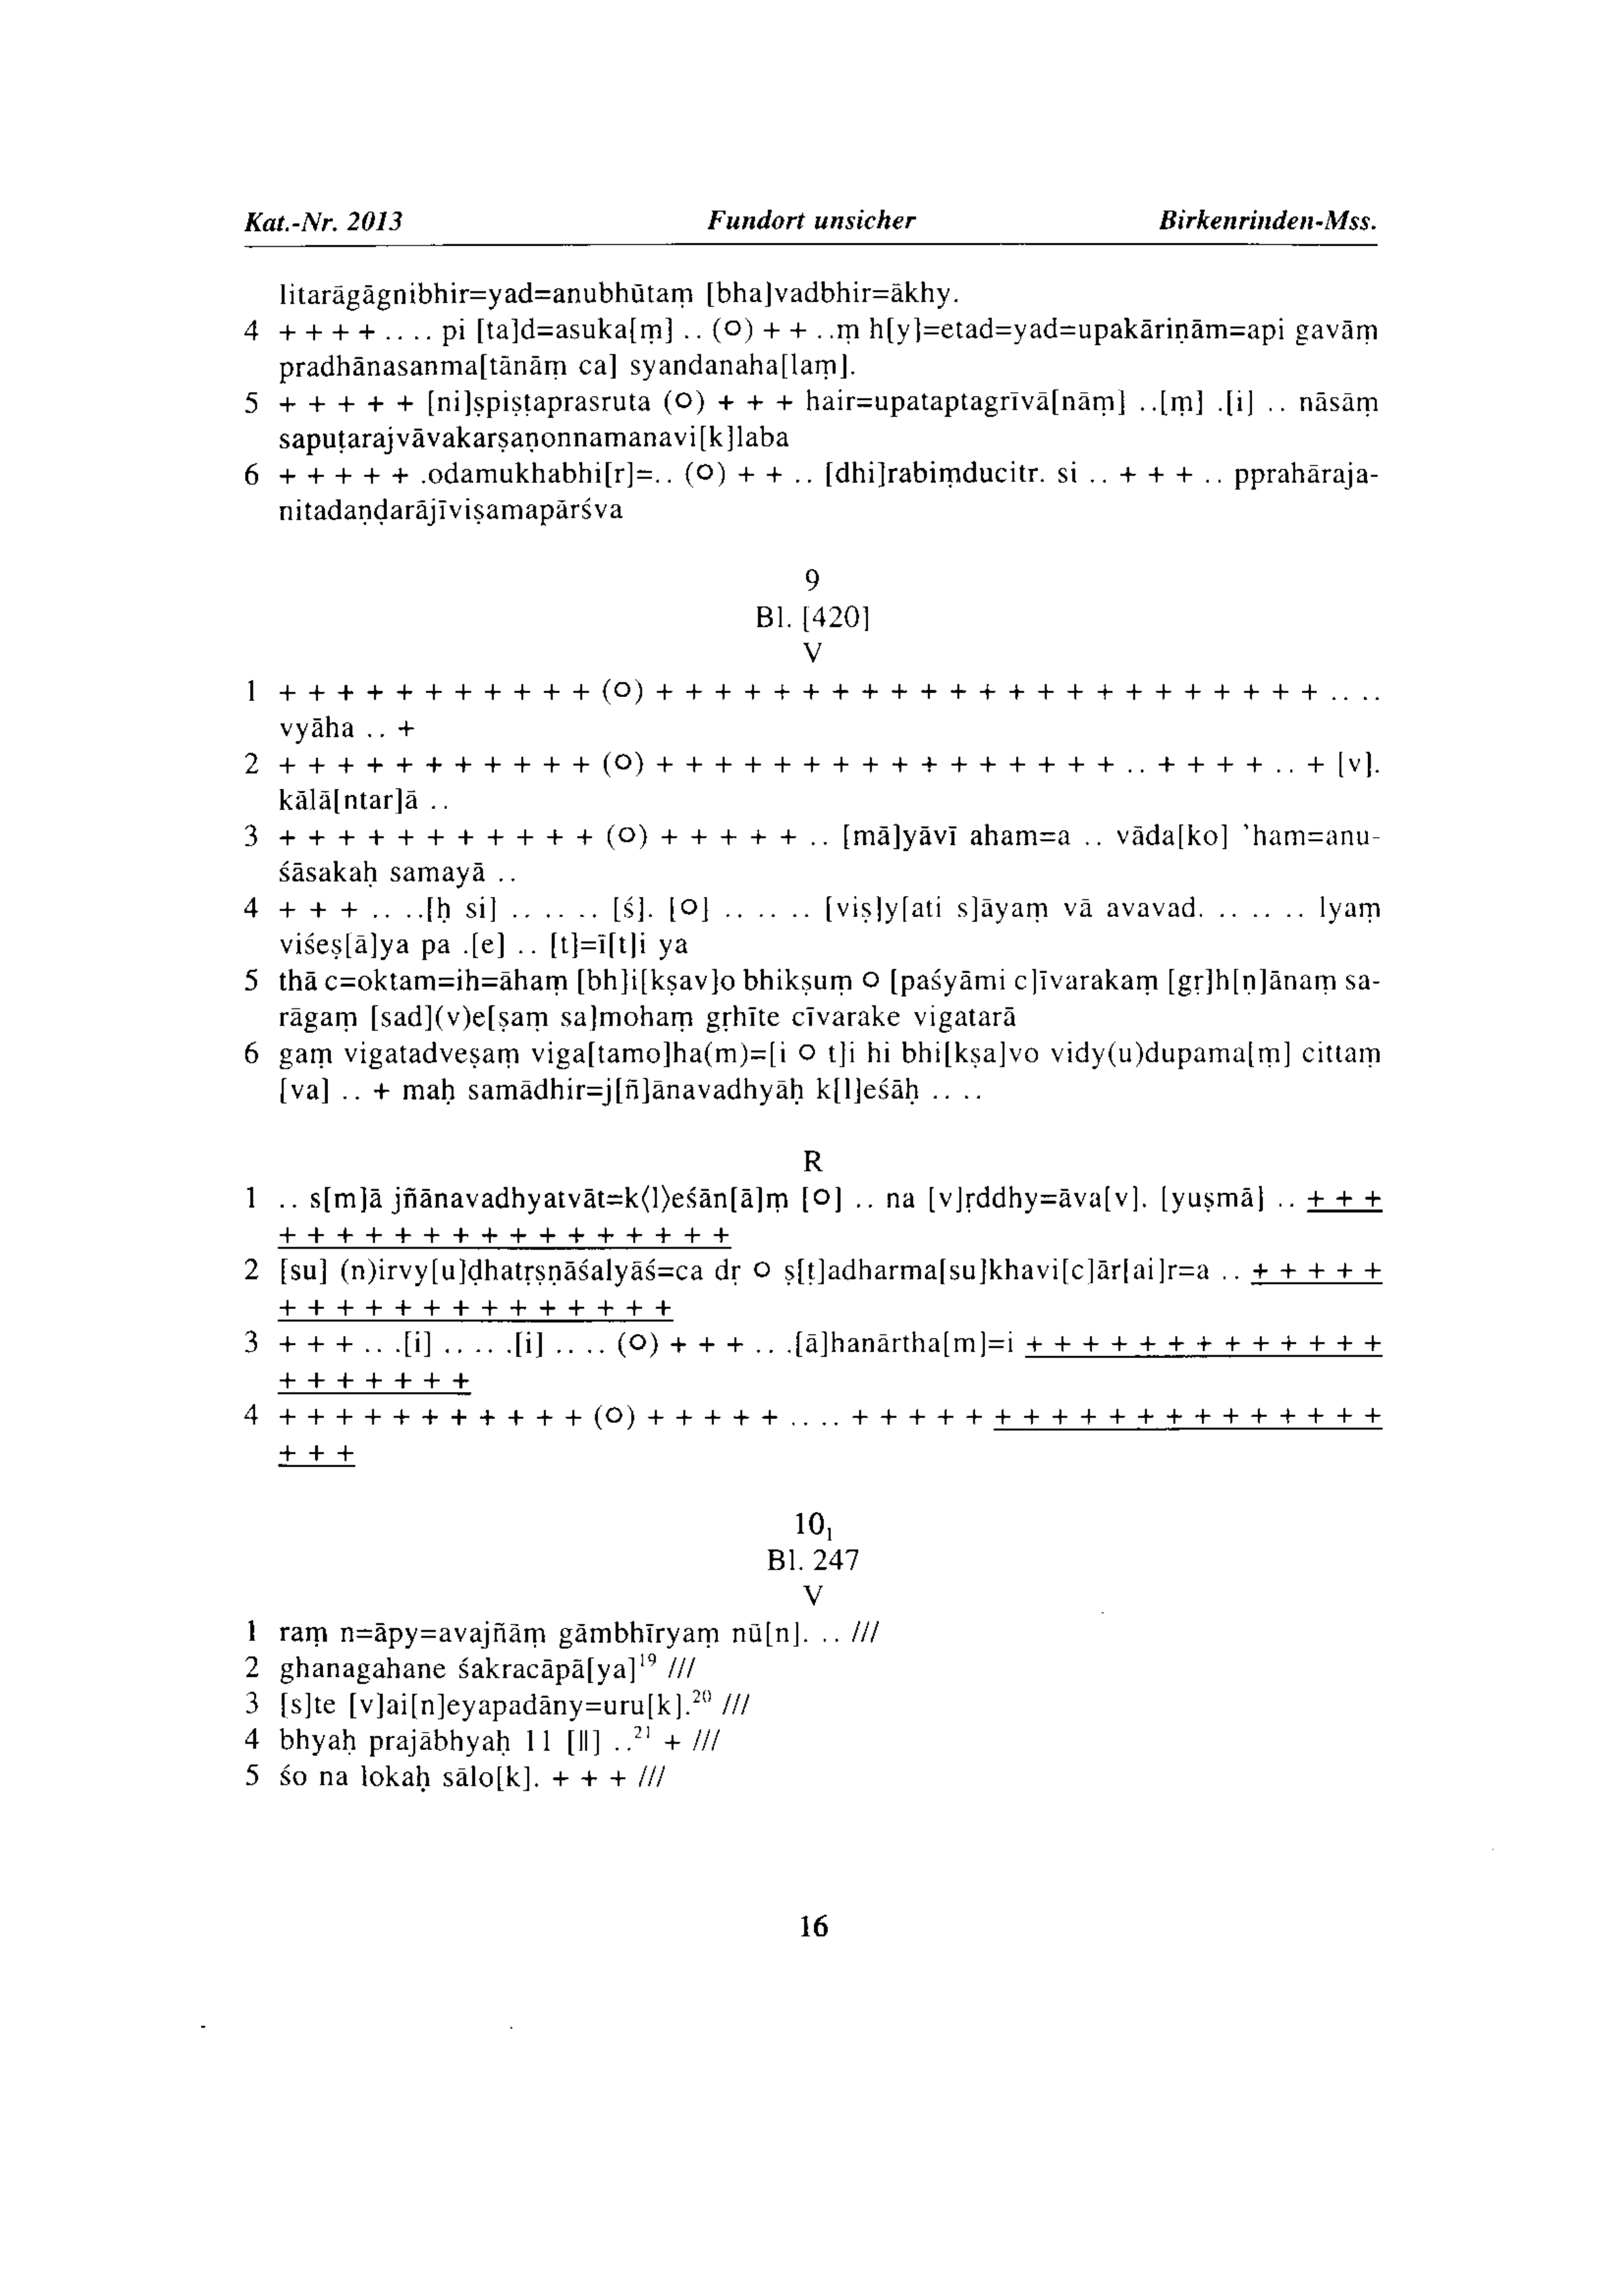 Kat.-Nr. 2013 Fundort unsicher Birkenrinden-Mss.
litarāgāgnibhir=yad=anubhūtaṃ [bha]vadbhir=ākhy.
4 + + + + .. .. pi [ta]d=asuka[ṃ] .. (○) + + ..ṃ h[y]=etad=yad=upakāriṇām=api gavāṃ
pradhānasanma[tānāṃ ca] syandanaha[laṃ].
5 + + + + + [ni]ṣpiṣṭaprasruta (○) + + + hair=upataptagrīvā[nāṃ] ..[ṃ] .[i] .. nāsāṃ
sapuṭarajvāvakarṣaṇonnamanavi[k]laba
6 + + + + + .odamukhabhi[r]=.. (○) + + .. [dhi]rabiṃducitr. si .. + + + .. pprahāraja-
nitadaṇḍarājīviṣamapārśva
9
Bl. [420]
V
1 + + + + + + + + + + + (○) + + + + + + + + + + + + + + + + + + + + + + + .. ..
vyāha .. +
2 + + + + + + + + + + + (○) + + + + + + + + + + + + + + + + .. + + + + .. + [v].
kālā[ntar]ā ..
3 + + + + + + + + + + + (○) + + + + + .. [mā]yāvī aham=a .. vāda[ko] ’ham=anu-
śāsakaḥ samayā ..
4 + + + .. ..[ḥ si] .. .. .. [ś]. [○] .. .. .. [viṣ]y[ati s]āyaṃ vā avavad. .. .. .. lyaṃ
viśeṣ[ā]ya pa .[e] .. [t]=ī[t]i ya
5 thā c=oktam=ih=āhaṃ [bh]i[kṣav]o bhikṣuṃ ○ [paśyāmi c]īvarakaṃ [gṛ]h[ṇ]ānaṃ sa-
rāgaṃ [sad](v)e[ṣaṃ sa]mohaṃ gṛhīte cīvarake vigatarā
6 gaṃ vigatadveṣaṃ viga[tamo]ha(m)=[i ○ t]i hi bhi[kṣa]vo vidy(u)dupama[ṃ] cittaṃ
[va] .. + maḥ samādhir=j[ñ]ānavadhyāḥ k[l]eśāḥ .. ..
R
1 .. s[m]ā jñānavadhyatvāt=k⟨l⟩eśān[ā]ṃ [○] .. na [v]ṛddhy=āva[v]. [yuṣmā] .. + + +
+ + + + + + + + + + + + + + + +
2 [su] (n)irvy[u]ḍhatṛṣṇāśalyāś=ca dṛ ○ ṣ[ṭ]adharma[su]khavi[c]ār[ai]r=a .. + + + + +
+ + + + + + + + + + + + + +
3 + + + .. .[i] .. .. .[i] .. .. (○) + + + .. .[ā]hanārtha[m]=i + + + + + + + + + + + + +
+ + + + + + +
4 + + + + + + + + + + + (○) + + + + + .. .. + + + + + + + + + + + + + + + + + + +
+ + +
10₁
Bl. 247
V
1 raṃ n=āpy=avajñāṃ gāmbhīryaṃ nū[n]. .. ///
2 ghanagahane śakracāpā[ya]¹⁹ ///
3 [s]te [v]ai[n]eyapadāny=uru[k].²⁰ ///
4 bhyaḥ prajābhyaḥ 11 [||] ..²¹ + ///
5 śo na lokaḥ sālo[k]. + + + ///
16